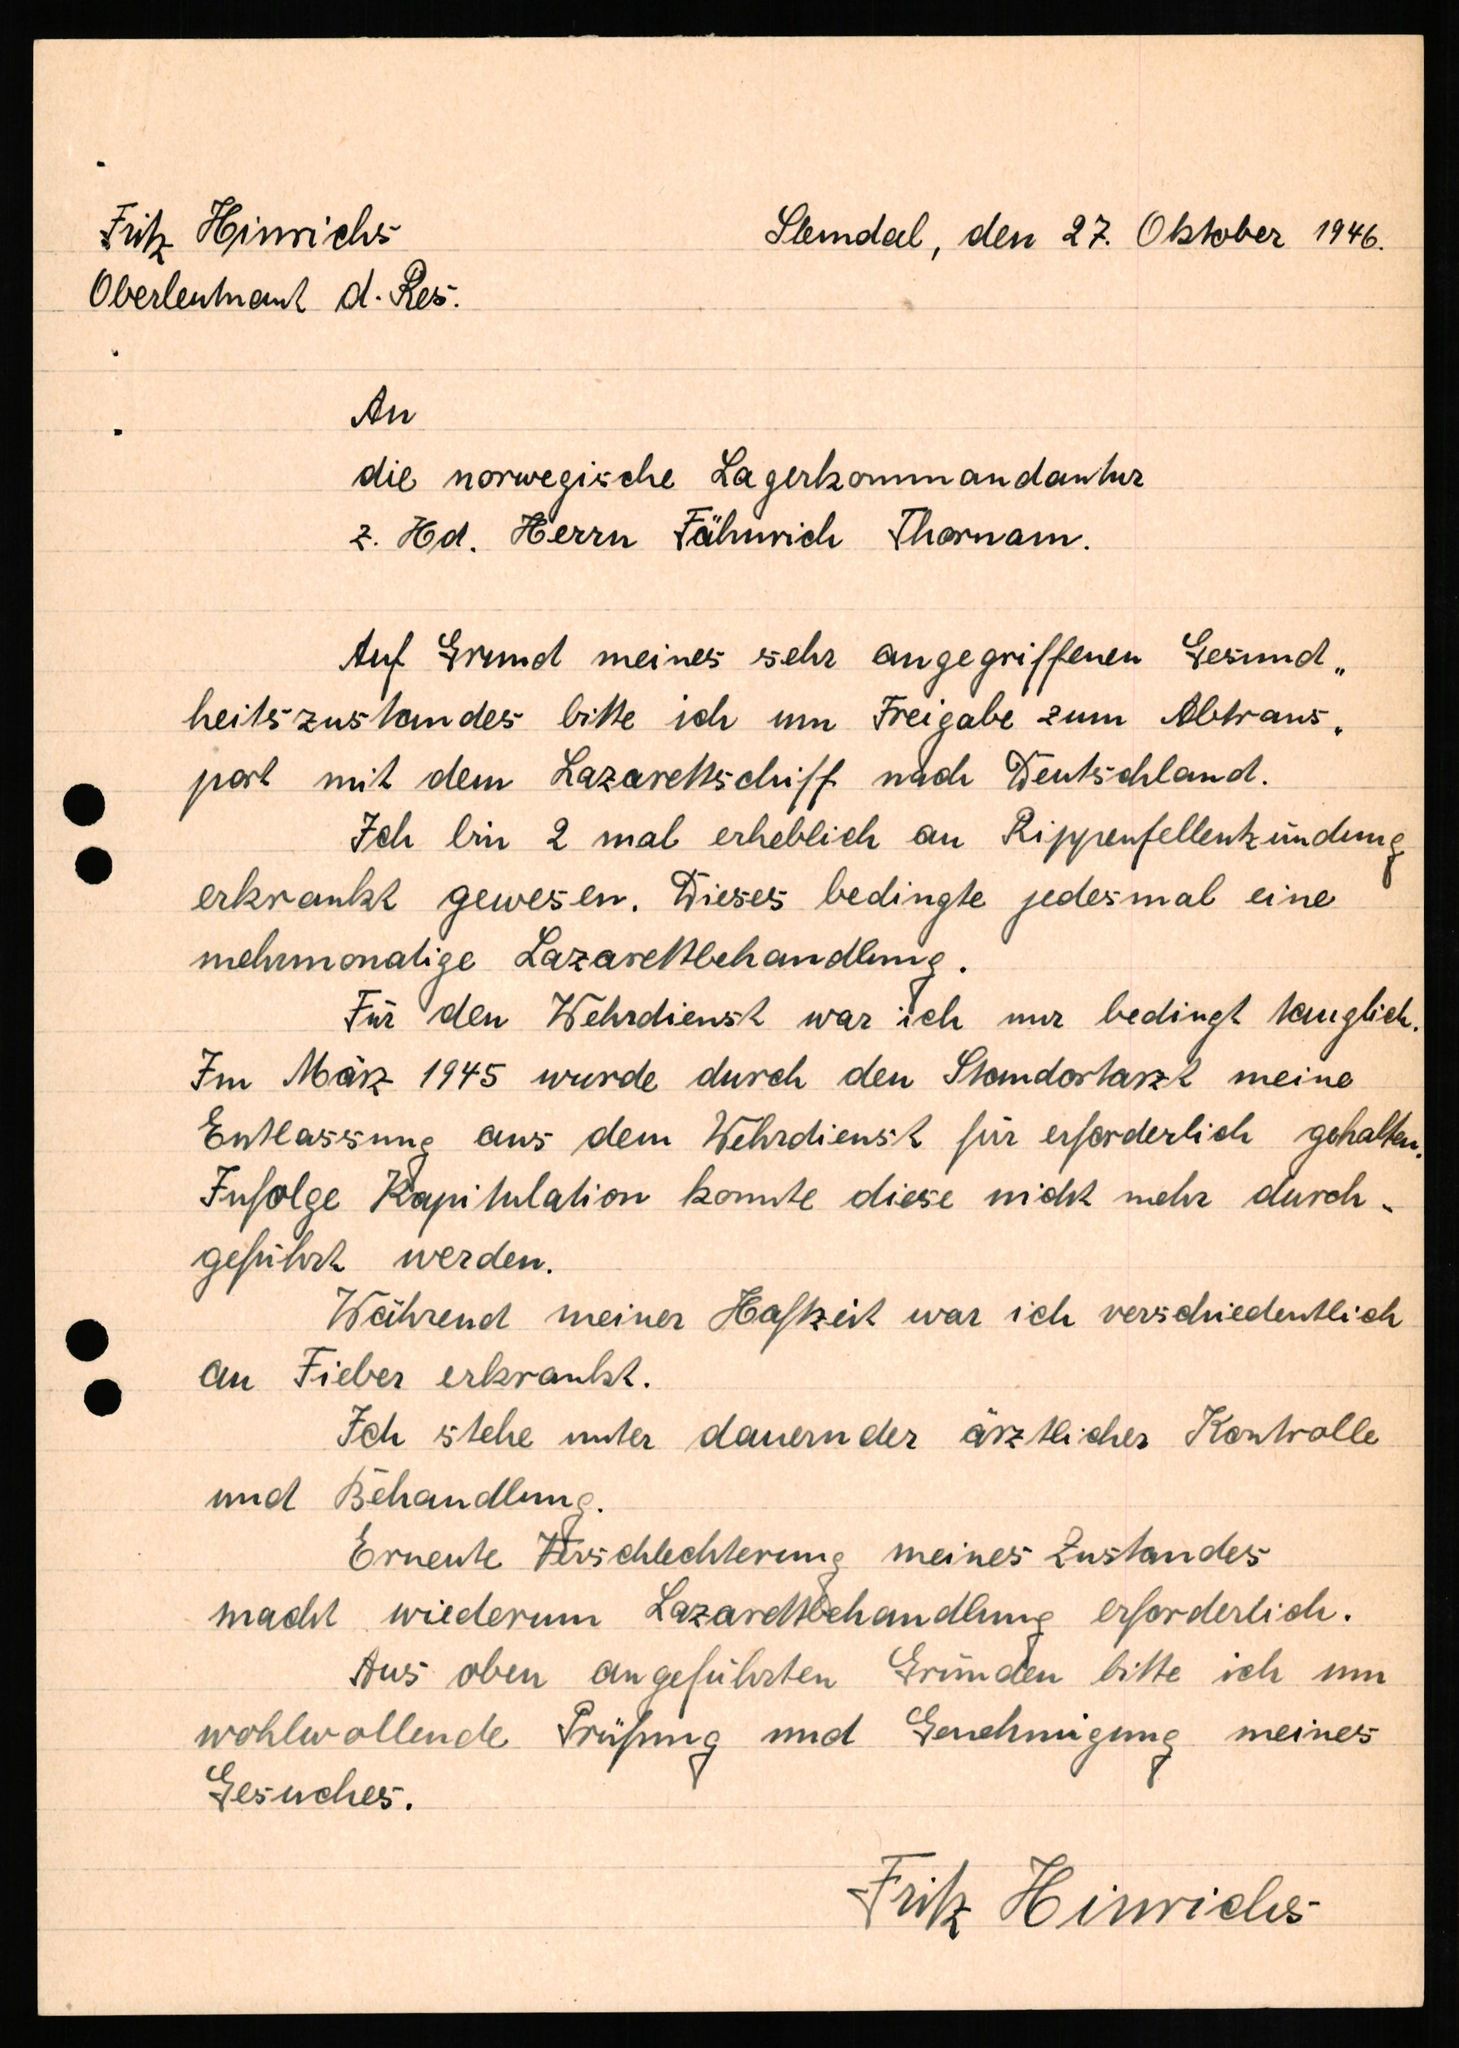 Fritz Hinrichs
Oberleutnant d. Res.
Slemdal, den 27. Oktober 1946.
An
die norwegische Lagerkommandantur
z. Hd. Herrn Fähnrich Thornam.
Auf Grund meines sehr angegriffenen Gesund„
heitszustandes bitte ich um Freigabe zum Abtrans„
port mit dem Lazarettschiff nach Deutschland.
Ich bin 2 mal erheblich an Rippenfellentzündung
erkrankt gewesen. Dieses bedingte jedesmal eine
mehrmonatige Lazarettbehandlung.
Für den Wehrdienst war ich nur bedingt tauglich.
Im März 1945 wurde durch den Standortarzt meine
Entlassung aus dem Wehrdienst für erforderlich gehalten.
Infolge Kapitulation konnte diese nicht mehr durch-
geführt werden.
Während meiner Haftzeit war ich verschiedentlich
an Fieber erkrankt.
Ich stehe unter dauernder ärztlicher Kontrolle
und Behandlung.
Erneute Verschlechterung meines Zustandes
macht wiederum Lazarettbehandlung erforderlich.
Aus oben angeführten Gründen bitte ich um
wohlwollende Prüfung und Genehmigung meines
Gesuches.
Fritz Hinrichs